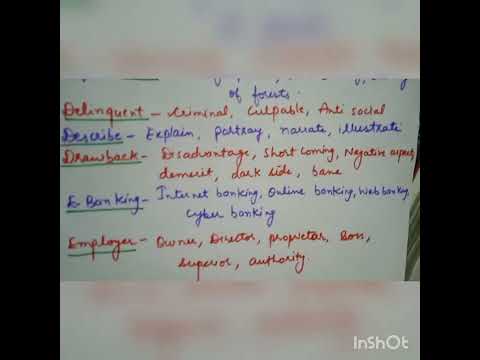 of forests.
Delinquent - Criminal, Culpable, Anti social
Describe - Explain, portray, narrate, illustrate
Drawback - Disadvantage, Short Coming, Negative aspect,
demerit, dark side, bane
E-Banking - Internet banking, Online banking, Web banking,
Cyber banking
Employer - Owner, Director, proprietor, Boss,
Superior, authority.
InShOt